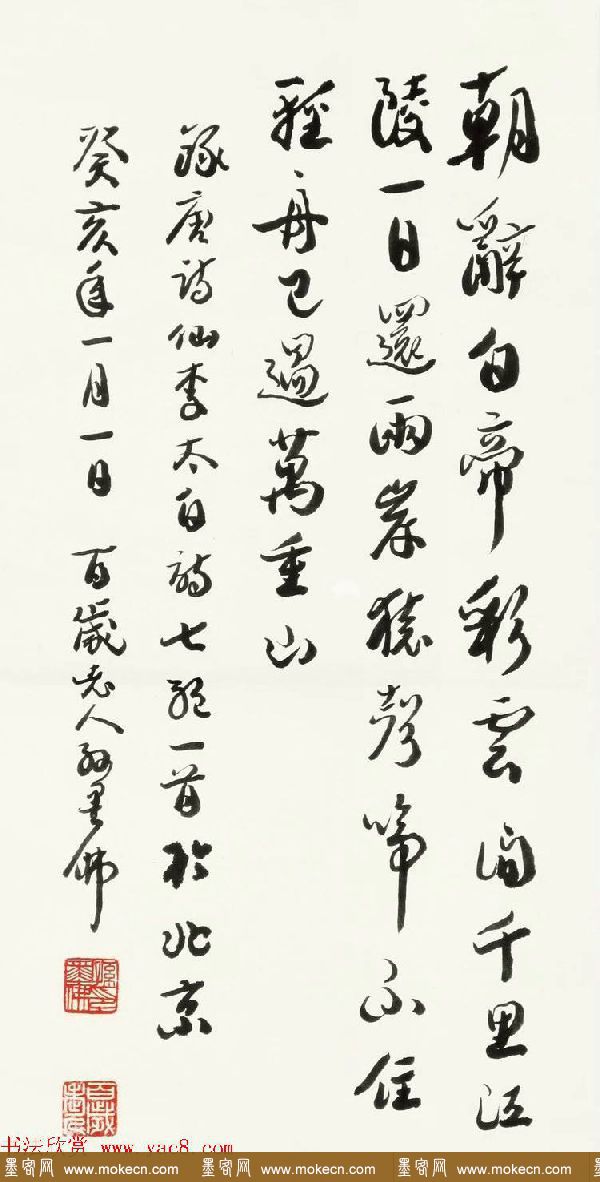 朝辭白帝彩雲间千里江
陵一日還兩岸猿聲啼不住
輕舟已過萬重山
錄唐詩仙李太白詩七絕一首於北京
癸亥年一月一日 百歲老人孫墨佛
孫墨佛印
百歲老人
书法欣赏 www.yac8.com
墨客网 www.mokecn.com 墨客网 www.mokecn.com 墨客网 www.mokecn.com